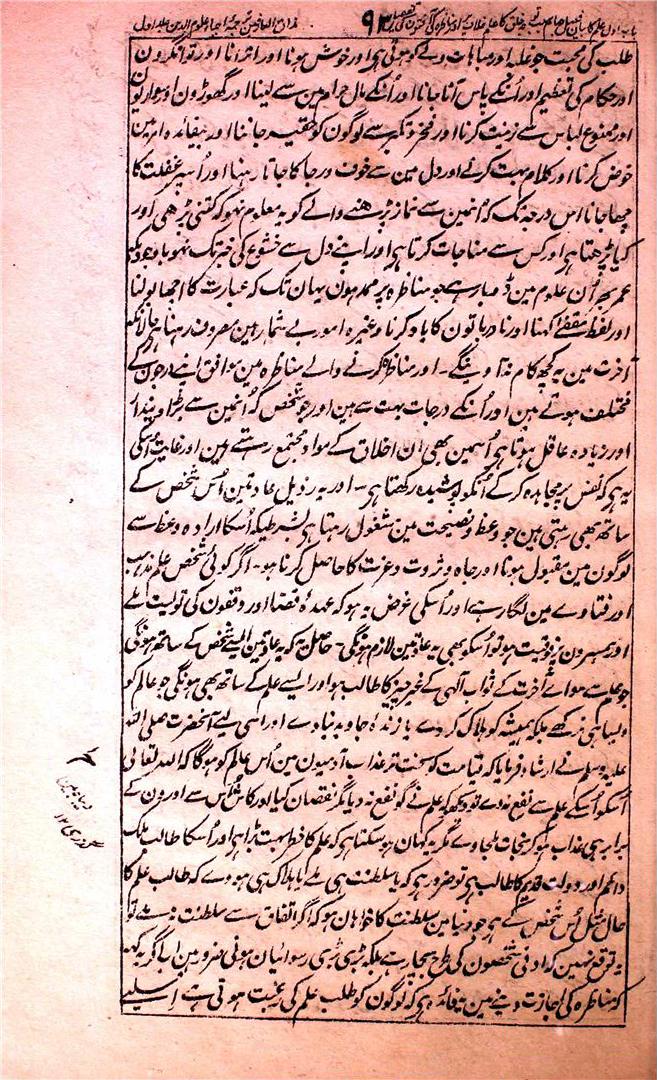 مذاق العارفین ترجمہ احیاء علوم الدین جلد اول
۹۳
طلب کی محبت جو غلبہ اور مباہات وغیرہ کو ہوتی ہے اور خوش ہونا اور اترانا اور توانگرون
اور حکام کی تعظیم اور اُنکے پاس آنا جانا اور اُنکے مال حرام مین سے لینا اور گھوڑون اور سواریون
اور ممنوع لباس سے زینت کرنا اور فخر و تکبر سے لوگون کو حقیر جاننا اور بیفائدہ امر مین
خوض کرنا اور کلام بہت کرنے اور دل مین سے خوف و رجا کا جاتا رہنا اور اُسپر غفلت کا
چھا جانا اس درجہ تک کہ اُنمین سے نماز پڑھنے والے کو یہ معلوم نہو کہ کتنی پڑھی اور
کیا پڑھتا ہے اور کس سے مناجات کرتا ہے اور اپنے دل سے خشوع کی خبر تک نہو باوجودیکہ
عمر بھر اُن علوم مین ڈوبا رہے جو مناظرہ پر ممد ہون یہان تک کہ عبارت کا اچھا بولنا
اور لفظ مقفے کہنا اور نادر باتون کا یاد کرنا وغیرہ امور بے شمار مین مصروف رہنا حالانکہ
آخرت مین یہ کچھ کام نہ آوینگے۔ اور مناظرہ کرنے والے مناظرہ مین موافق اپنے درجون کے
مختلف ہوتے ہین اور اُنکے درجات بہت سے ہین اور جو شخص کہ اُنمین سے بڑا دیندار
اور زیادہ عاقل ہوتا ہے اُسمین بھی ان اخلاق کے مواد مجتمع رہتے ہین اور غایت اُسکی
یہ ہے کہ نفس پر مجاہدہ کر کے اُنکو پوشیدہ رکھتا ہے۔ اور یہ رذیل عادتین اُس شخص کے
ساتھ بھی رہتی ہین جو وعظ و نصیحت مین مشغول رہتا ہے بشرطیکہ اُسکا ارادہ وعظ سے
لوگون مین مقبول ہونا اور جاہ و ثروت و عزت کا حاصل کرنا ہو۔ اگر کوئی شخص علم مذہب
اور فتاوے مین لگا رہے اور اُسکی غرض یہ ہو کہ عہدۂ قضا اور وقفون کی تولیت ملے
اور ہمسرون پر فوقیت ہو تو اُسکو بھی یہ عادتین لازم ہونگی۔ حاصل یہ کہ یہ عادتین ایسے شخص کے ساتھ ہونگی
جو علم سے سواے آخرت کے ثواب آلہی کے غیر چیز کا طالب ہو اور ایسے علم کے ساتھ بھی ہونگی جو عالم کو
ویسا ہی نرکھے بلکہ ہمیشہ کو ہلاک کر دے یا زندۂ جاوید بنا دے اور اسی لیے آنحضرت صلی اللہ
علیہ وسلم نے ارشاد فرمایا کہ قیامت کو سخت تر عذاب آدمیون مین اُس عالم کو ہوگا کہ اللہ تعالی
اُسکو اُسکے علم سے نفع ندے تو دیکھو کہ علم نے گو نفع نہ دیا مگر نقصان کیا اور کاش اُس سے اورون کے
برابر ہی عذاب ہو کر نجات ملجاوے مگر یہ کہان ہو سکتا ہے کہ علم کا خطر بہت بڑا ہے اور اُسکا طالب ملک
دائم اور دولت قدیم کا طالب ہے تو ضرور ہے کہ یا سلطنت ہی ملے یا ہلاک ہی ہووے کہ طالب علم کا
حال مثل اُس شخص کے ہے جو دنیا مین سلطنت کا خواہان ہو کہ اگر اتفاق سے سلطنت نہ ملے تو
یہ توقع نہین کہ ادنی شخصون کی طرح بچا رہے بلکہ بڑی بڑی رسوائیان ہونی ضرور ہین اب اگر یہ کہو
کہ مناظرہ کی اجازت دینے مین یہ فائدہ ہے کہ لوگون کو طلب علم کی رغبت ہوتی ہے اسلیے